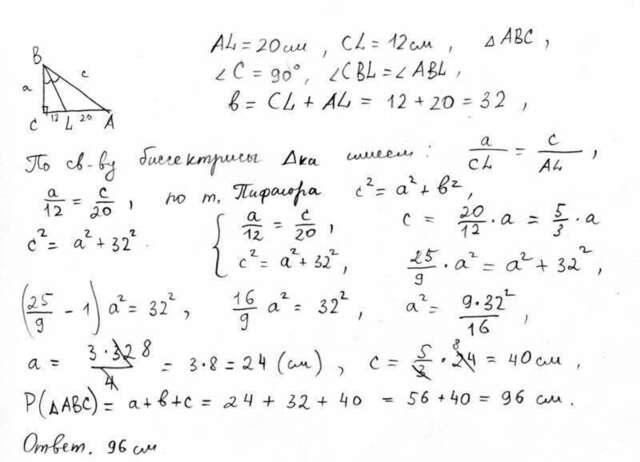 AL = 20 см , CL = 12 см , △ABC ,
∠C = 90°, ∠CBL = ∠ABL ,
в = CL + AL = 12 + 20 = 32 ,
B
a
c
C 12 L 20 A
По св-ву биссектрисы Δка имеем : a/CL = c/AL ,
a/12 = c/20 , по т. Пифагора c² = a² + в² ,
c² = a² + 32² . { a/12 = c/20 , c² = a² + 32² ,
c = 20/12 · a = 5/3 · a
25/9 · a² = a² + 32² ,
(25/9 - 1) a² = 32² , 16/9 a² = 32² , a² = 9·32²/16 ,
a = 3·32 8/4 = 3·8 = 24 (см) , c = 5/3 · 24 8 = 40 см ,
P(△ABC) = a + в + c = 24 + 32 + 40 = 56 + 40 = 96 см .
Ответ. 96 см